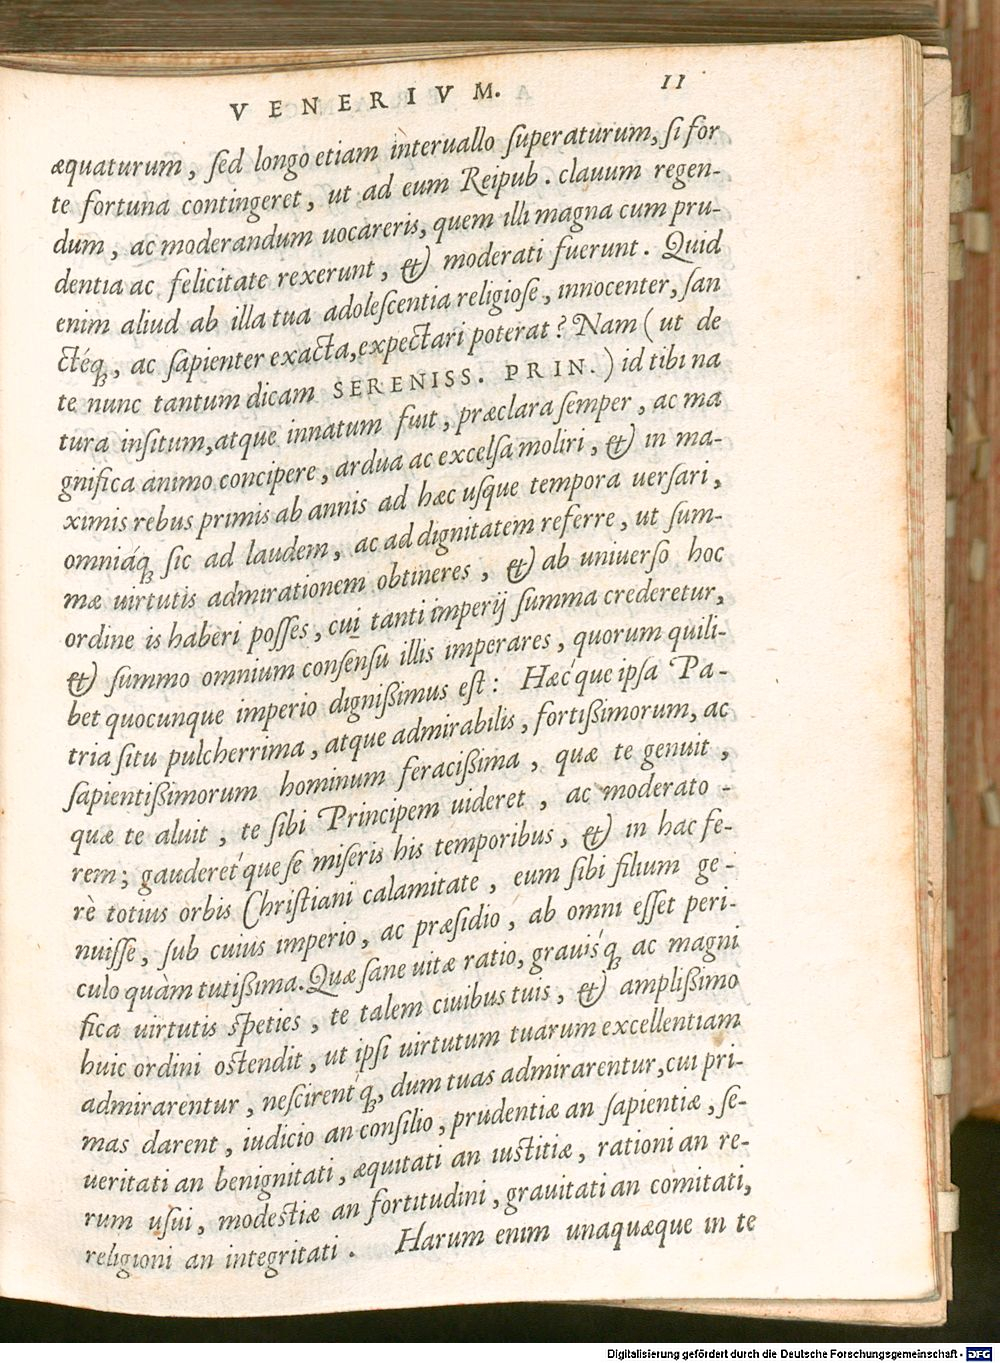 VENERIVM. 11
æquaturum, sed longo etiam interuallo superaturum, si for
te fortuna contingeret, ut ad eum Reipub. clauum regen-
dum, ac moderandum uocareris, quem illi magna cum pru-
dentia ac felicitate rexerunt, & moderati fuerunt. Quid
enim aliud ab illa tua adolescentia religiose, innocenter, san
ctéq́;, ac sapienter exacta, expectari poterat? Nam (ut de
te nunc tantum dicam SERENISS. PRIN.) id tibi na
tura insitum, atque innatum fuit, præclara semper, ac ma
gnifica animo concipere, ardua ac excelsa moliri, & in ma-
ximis rebus primis ab annis ad hæc usque tempora uersari,
omniáq́; sic ad laudem, ac ad dignitatem referre, ut sum-
mæ uirtutis admirationem obtineres, & ab uniuerso hoc
ordine is haberi posses, cui tanti imperij summa crederetur,
& summo omnium consensu illis imperares, quorum quili-
bet quocunque imperio dignißimus est: Hæćque ipsa Pa-
tria situ pulcherrima, atque admirabilis, fortißimorum, ac
sapientißimorum hominum feracißima, quæ te genuit,
quæ te aluit, te sibi Principem uideret, ac moderato-
rem; gauderet́que se miseris his temporibus, & in hac fe-
rè totius orbis Christiani calamitate, eum sibi filium ge-
nuisse, sub cuius imperio, ac præsidio, ab omni esset peri-
culo quàm tutißima. Quæ sane uitæ ratio, grauisq́; ac magni
fica uirtutis speties, te talem ciuibus tuis, & amplißimo
huic ordini ostendit, ut ipsi uirtutum tuarum excellentiam
admirarentur, nescirentq́;, dum tuas admirarentur, cui pri-
mas darent, iudicio an consilio, prudentiæ an sapientiæ, se-
ueritati an benignitati, æquitati an iustitiæ, rationi an re-
rum usui, modestiæ an fortitudini, grauitati an comitati,
religioni an integritati. Harum enim unaquæque in te
Digitalisierung gefördert durch die Deutsche Forschungsgemeinschaft - DFG